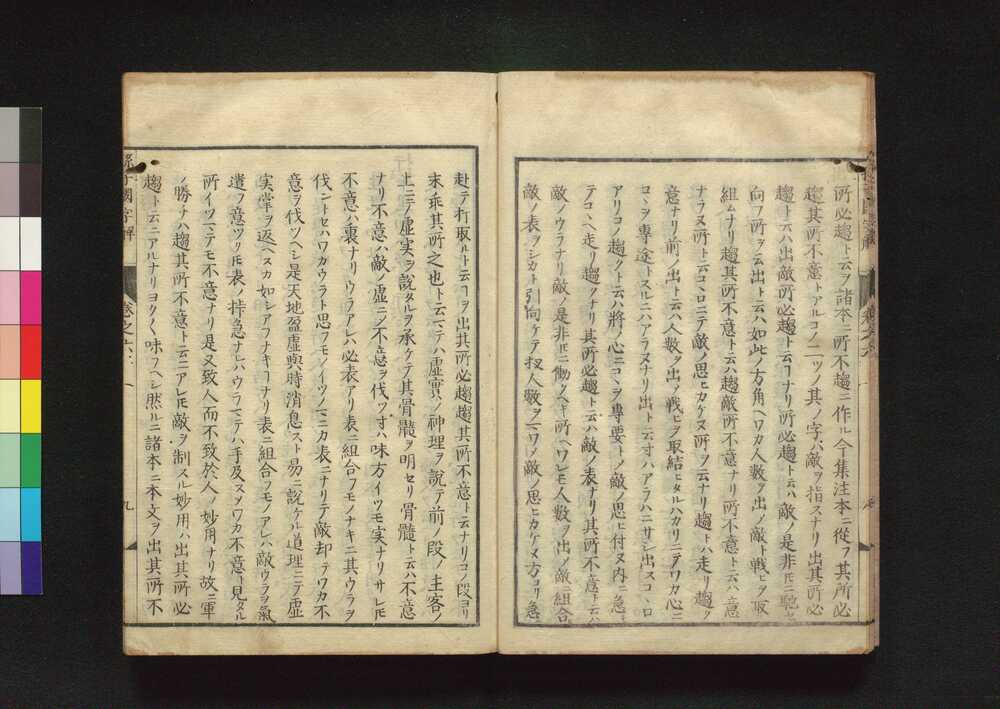 所必趨ト云ヲ諸本ニ所不趨ニ作ル今集注本ニ從フ其所必
趨其所不意トアルコノ二ツノ其ノ字ハ敵ヲ指スナリ出其所必
趨トハ出敵所必趨ト云フナリ所必趨ト云ハ敵ノ是非𪜈ニ馳セ
向フ所ヲ云出ト云ハ如此ノ方角ヘワカ人數ヲ出ノ敵ト戰ヒヲ取
組ムナリ趨其所不意ト云ハ趨敵所不意ナリ所不意ト云ハ意
ナラヌ所ト云コヽロニテ敵ノ思ヒカケヌ所ヲ云ナリ趨トハ走リ趨ク
意ナリ前ノ出ト云ハ人數ヲ出ノ戰ヒヲ取結ヒタルハカリニテワカ心ニ
コヽヲ專途トスルニハアラヌナリ出ト云寸ハアラハニサシ出スコヽロ
アリコノ趨クト云ハ將ノ心ニコヽヲ專要トノ敵ノ思ヒ付ヌ内ニ急ニ
テコヽヘ走リ趨クナリ其所必趨ト云ハ敵ノ表ナリ其所不意ト云ハ
敵ノウラナリ敵ノ是非𪜈ニ働クヘキ所ヘワレモ人數ヲ出ノ敵ニ組合
敵ノ表ヲシカト引向ケテ扨人數ヲ一ワノ敵ノ思ヒカケヌ方ヨリ急ニ
赴テ打取ルト云フヲ出其所必趨趨其所不意ト云ナリコノ段ヨリ
末乘其所之也ト云マテハ虚實ノ神理ヲ説テ前ノ段ノ主客ノ
上ニテノ虚実ヲ説タルヲ承ケテ其骨髓ヲ明セリ骨髓ト云ハ不意
ナリ不意ハ敵ノ虚ニノ不意ヲ伐ツ寸ハ味方イツモ実ナリサレ𪜈
不意ハ裏ナリウラアレハ必表アリ表ニ組合フモノナキニ其ウラヲ
伐ントセハワカウラト思フモノイツノマニカ表ニナリテ敵却テワカ不
意ヲ伐ツヘシ是天地盈虚與時消息スト易ニ説ケル道理ニテ虚
実掌ヲ返ヘスカ如シアフナキフナリ表ニ組合フモノアレハ敵ウラヲ氣
遣フ意ツリ𪜈表ノ拵急ナレハウラマテハ手及ス又ワカ不意ト見タル
所イツマテモ不意ナリ是又致人而不致於人ノ妙用ナリ故ニ軍
ノ勝ナハ趨其所不意ト云ニアレ𪜈敵ヲ制スル妙用ハ出其所必
趨ト云ニアルナリヨク〱味フヘシ然ルニ諸本ニ本文ヲ出其所不
孫子國字解
卷之六
九